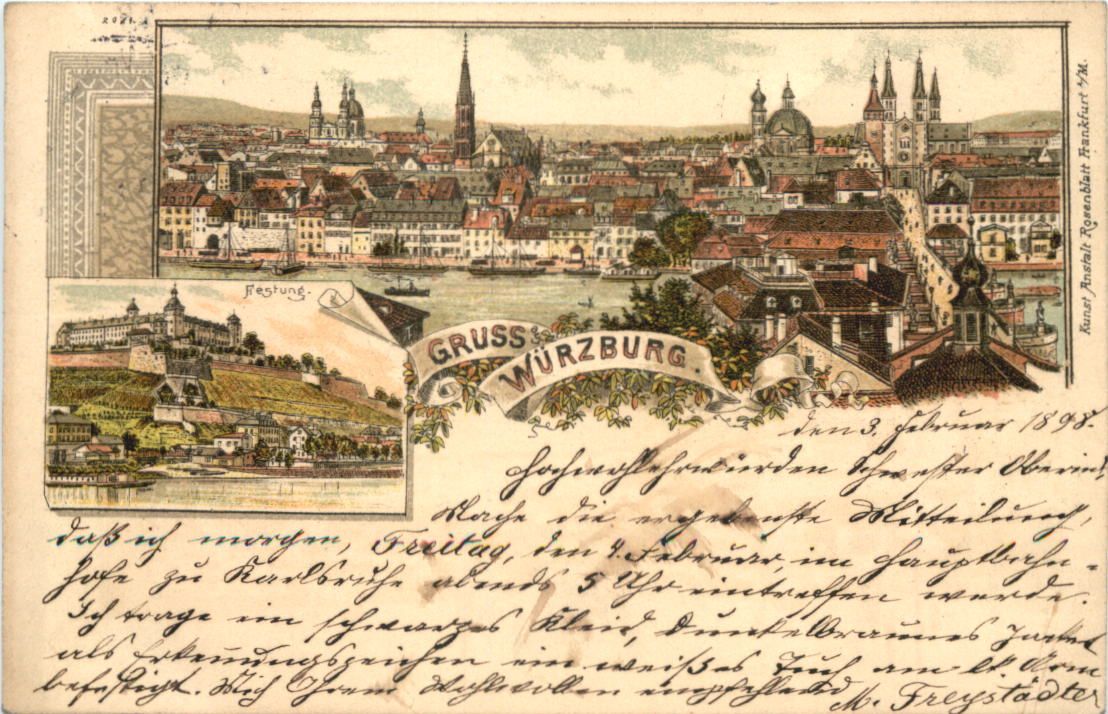 Festung.
GRUSS a/s
WÜRZBURG.
Kunst Anstalt Rosenblatt Frankfurt a/M.
den 3. Februar 1898.
Hochwohlehrwürden Schwester Oberin!
Mache die ergebenste Mitteilung,
daß ich morgen, Freitag, den 4. Februar, im Hauptbahn-
hofe zu Karlsruhe abends 5 Uhr eintreffen werde.
Ich trage ein schwarzes Kleid, dunkelbraunes Jacket
als Erkennungszeichen ein weißes Tuch am lk. Arm
befestigt. Mich Ihrem Wohlwollen empfehlend
M. Freystädter